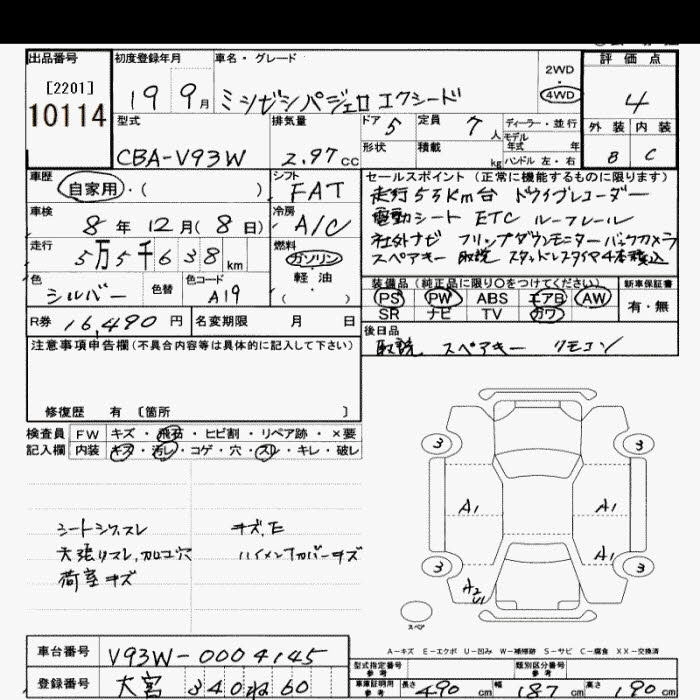 出品番号 初度登録年月 車名・グレード 2WD・4WD 評価点
[2201]
10114 19 9月 ミシビシパジェロ エクシード 4
型式 排気量 ドア 5 定員 7人 ディーラー・並行 外装 内装
モデル年式 年式
CBA-V93W 2.97cc 形状 積載 kg ハンドル 左・右 B C
車歴 シフト セールスポイント (正常に機能するものに限ります)
自家用・( ) FAT 走行55Km台 ドライブレコーダー
車検 冷房 電動シート ETC ルーフレール
8年 12月(8日) A/C 社外ナビ フリップダウンモニター バックカメラ
走行 燃料 スペアキー 取説 スタッドレスタイヤ4本積込
5万5千638km ガソリン・軽油
色 色替 色コード 装備品 (純正品に限り○をつけてください) 新車保証書
シルバー A19 PS PW ABS エアB AW 有・無
SR ナビ TV カワ
R券 16,490円 名変期限 月 日 後日品
注意事項申告欄(不具合内容等は具体的に記入して下さい) 取説 スペアキー リモコン
修復歴 有 〔箇所 〕
検査員 FW キズ・飛石・ヒビ割・リペア跡・×要
記入欄 内装 キズ・汚レ・コゲ・穴・スレ・キレ・破レ
3 3
A1 A1
A1
3 3
A2 U1
スペア
シートシワ、スレ キズ、モ
天張リスレ、カロコ穴
荷室キズ
A－キズ E－エクボ U－凹み W－補修跡 S－サビ C－腐食 XX－交換済
車台番号 V93W-0004145
型式指定番号 参考 類別区分番号 参考
登録番号 大宮 340 ね 60
車庫証明用 参考 長さ 490cm 幅 187cm 高さ 90cm